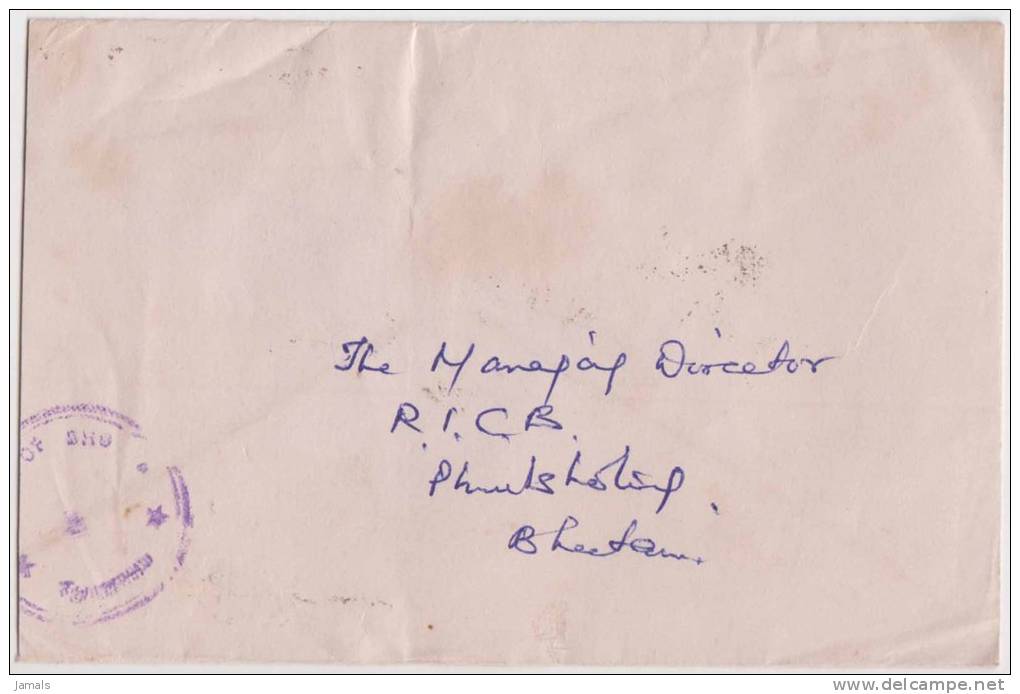 The Managing Director
R.I.C.B.
Phuntsholing,
Bhutan.
OF BHU
Jamals
delcampe.net